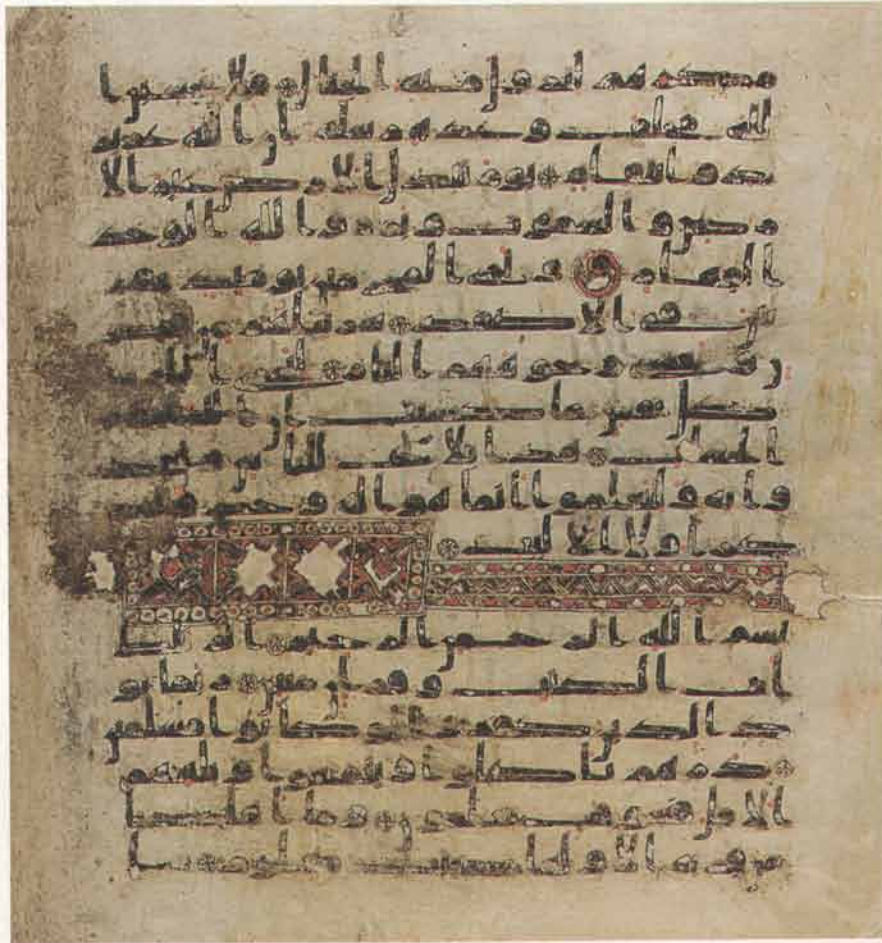 مكرهم لتزول منه الجبال فلا تحسبن ا
لله مخلف وعده رسله ان الله عزيز
ذو انتقام يوم تبدل الارض غير الا
رض والسموت وبرزوا لله الوحد
القهار وترى المجرمين يومئذ مقر
نين في الاصفد سرابيلهم من قطر
ن وتغشى وجوههم النار ليجزي الله
كل نفس ما كسبت ان الله سريع
الحساب هذا بلغ للناس ولينذر
وا به وليعلموا انما هو اله وحد وليذ
كر اولوا الالبب
بسم الله الرحمن الرحيم الر تلك
ايت الكتب وقران مبين ربما يو
د الذين كفروا لو كانوا مسلمين
ذرهم ياكلوا ويتمتعوا ويلههم
الامل فسوف يعلمون وما اهلكنا
من قرية الا ولها كتب معلوم ما